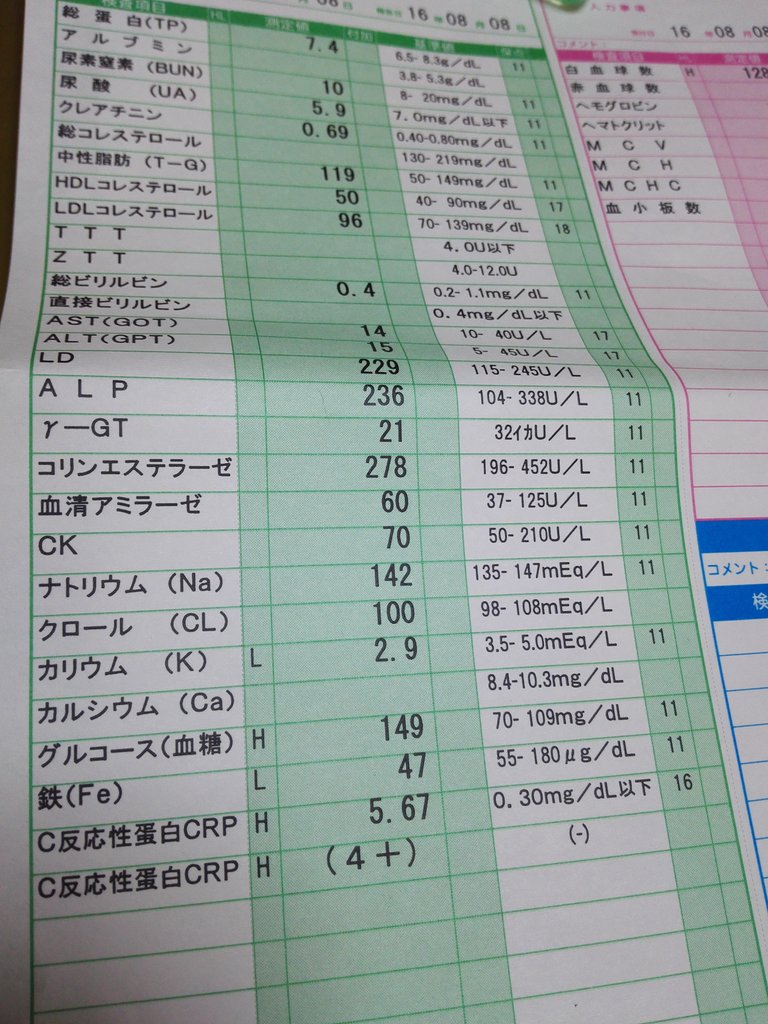 検査項目 HL 測定値 付加 基準値
16年08月08日
総蛋白(TP) 7.4 6.5-8.3g/dL 11
アルブミン 3.8-5.3g/dL
尿素窒素(BUN) 10 8-20mg/dL 11
尿酸(UA) 5.9 7.0mg/dL以下 11
クレアチニン 0.69 0.40-0.80mg/dL 11
総コレステロール 130-219mg/dL
中性脂肪(T-G) 119 50-149mg/dL 11
HDLコレステロール 50 40-90mg/dL 17
LDLコレステロール 96 70-139mg/dL 18
TTT 4.0U以下
ZTT 4.0-12.0U
総ビリルビン 0.4 0.2-1.1mg/dL 11
直接ビリルビン 0.4mg/dL以下
AST(GOT) 14 10-40U/L 17
ALT(GPT) 15 5-45U/L 17
LD 229 115-245U/L 11
ALP 236 104-338U/L 11
γ-GT 21 32イカU/L 11
コリンエステラーゼ 278 196-452U/L 11
血清アミラーゼ 60 37-125U/L 11
CK 70 50-210U/L 11
ナトリウム(Na) 142 135-147mEq/L 11
クロール(CL) 100 98-108mEq/L
カリウム(K) L 2.9 3.5-5.0mEq/L 11
カルシウム(Ca) 8.4-10.3mg/dL
グルコース(血糖) H 149 70-109mg/dL 11
鉄(Fe) L 47 55-180μg/dL 11
C反応性蛋白CRP H 5.67 0.30mg/dL以下 16
C反応性蛋白CRP H (4+) (-)
16年08月08
コメント
検査項目 測定値
白血球数 H 128
赤血球数
ヘモグロビン
ヘマトクリット
MCV
MCH
MCHC
血小板数
コメント:
検